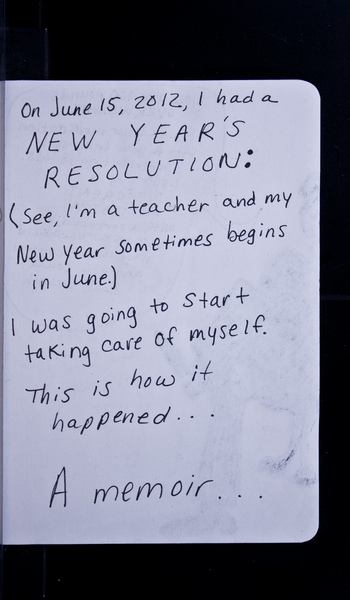 On June 15, 2012, I had a
NEW YEAR'S
RESOLUTION:
(See, I'm a teacher and my
New Year sometimes begins
in June.)
I was going to start
taking care of myself.
This is how it
happened...
A memoir...